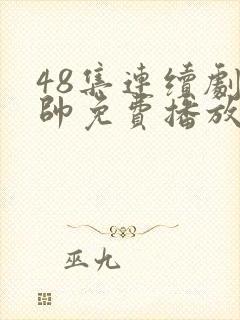 48集連續劇
帥免費播放
巫九